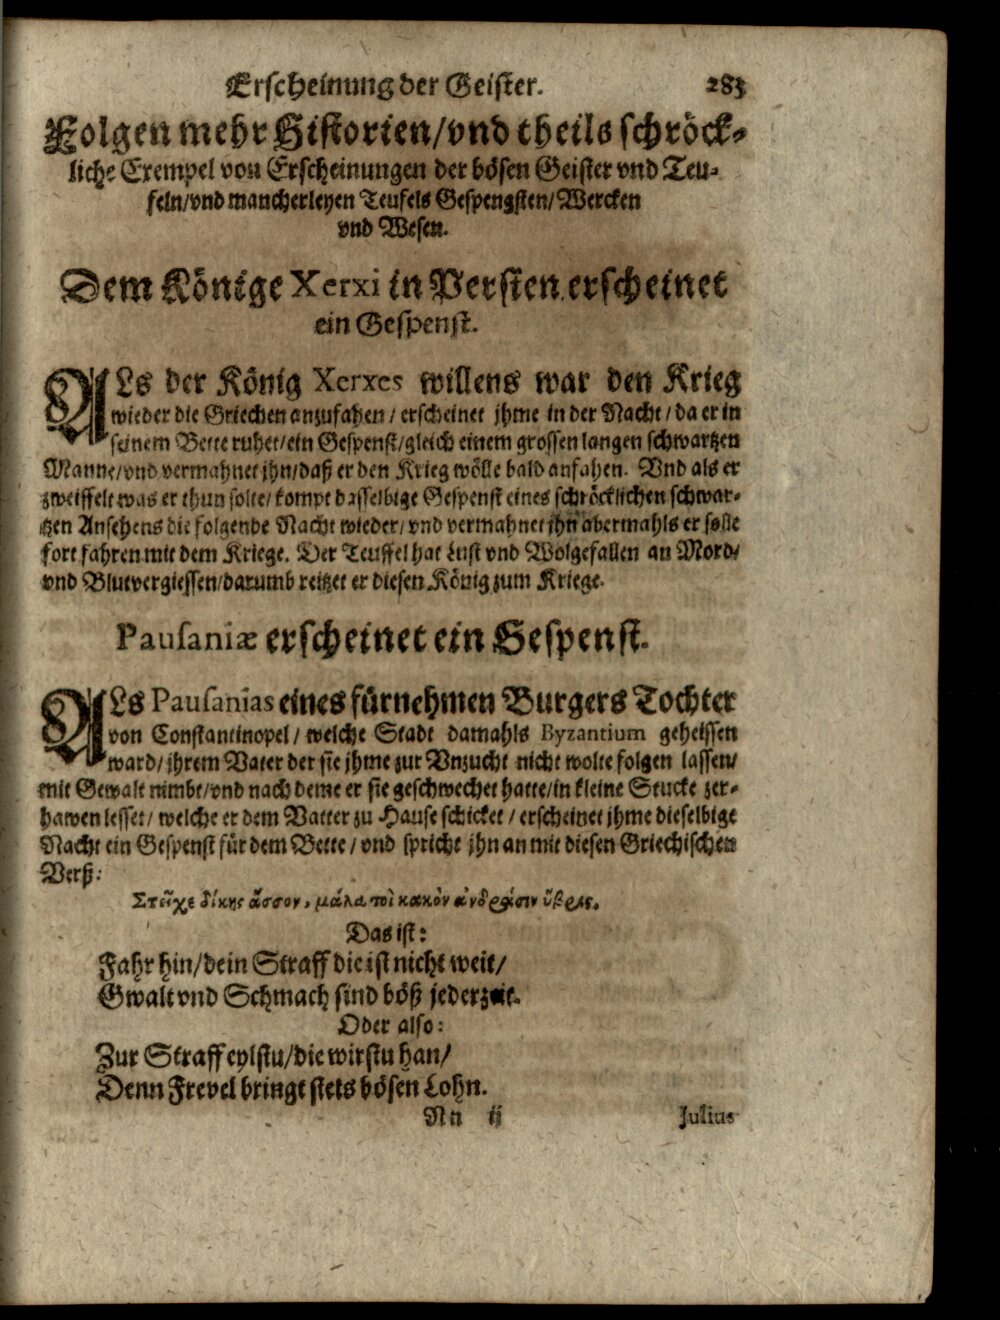 Erscheinung der Geister. 283
Folgen mehr Historien/vnd theils schröck-
liche Exempel von Erscheinungen der bösen Geister vnd Teu-
feln/vnd mancherleyen Teufels Gespengsten/Wercken
vnd Wesen.
Dem Könige Xerxi in Persien erscheinet
ein Gespenst.
ALs der König Xerxes willens war den Krieg
wieder die Griechen anzufahen / erscheinet jhme in der Nacht / da er in
seinem Bette ruhet/ein Gespenst/gleich einem grossen langen schwartzen
Manne/vnd vermahnet jhn/daß er den Krieg wölle bald anfahen. Vnd als er
zweiffelt was er thun solte/ kompt dasselbige Gespenst eines schröcklichen schwar-
tzen Ansehens die folgende Nacht wieder/ vnd vermahnet jhn abermahls er solle
fort fahren mit dem Kriege. Der Teuffel hat Lust vnd Wolgefallen an Mord/
vnd Blutvergiessen/darumb reitzet er diesen König zum Kriege.
Pausaniæ erscheinet ein Gespenst.
ALs Pausanias eines fürnehmen Burgers Tochter
von Constantinopel / welche Stadt damahls Byzantium geheissen
ward/ jhrem Vater der sie jhme zur Vnzucht nicht wolte folgen lassen/
mit Gewalt nimbt/vnd nach deme er sie geschwechet hatte/in kleine Stucke zer-
hawen lesset/ welche er dem Vatter zu Hause schicket / erscheinet jhme dieselbige
Nacht ein Gespenst für dem Bette / vnd spricht jhn an mit diesen Griechischen
Verß:
Στεῖχε δίκης ἆσσον, μάλα τοὶ κακὸν ἀνδράσιν ὕβρις.
Das ist:
Fahr hin/dein Straff die ist nicht weit/
Gwalt vnd Schmach sind böß jederzeit.
Oder also:
Zur Straff eylstu/die wirstu han/
Denn Frevel bringt stets bösen Lohn.
Nn ij Julius